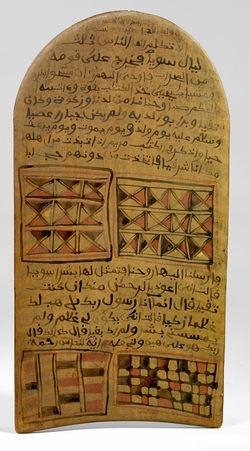 الا تكلم الناس ثلث
ليال سويا فخرج على قومه
من المحراب فاوحى اليهم ان سبحوا بكرة
وعشيا ييحيى خذ الكتب بقوة وءاتينه
الحكم صبيا وحنانا من لدنا وزكوة وكان
تقيا وبرا بوالديه ولم يكن جبارا عصيا
وسلم عليه يوم ولد ويوم يموت ويوم يبعث
حيا واذكر في الكتب مريم اذ انتبذت من اهلها
مكانا شرقيا فاتخذت من دونهم حجابا
فارسلنا اليها روحنا فتمثل لها بشرا سويا
قالت اني اعوذ بالرحمن منك ان كنت
تقيا قال انما انا رسول ربك ليهب لك
غلما زكيا قالت انى يكون لي غلم ولم
يمسسني بشر ولم اك بغيا قال كذلك قال
ربك هو علي هين ولنجعله ءاية للناس ورحمة